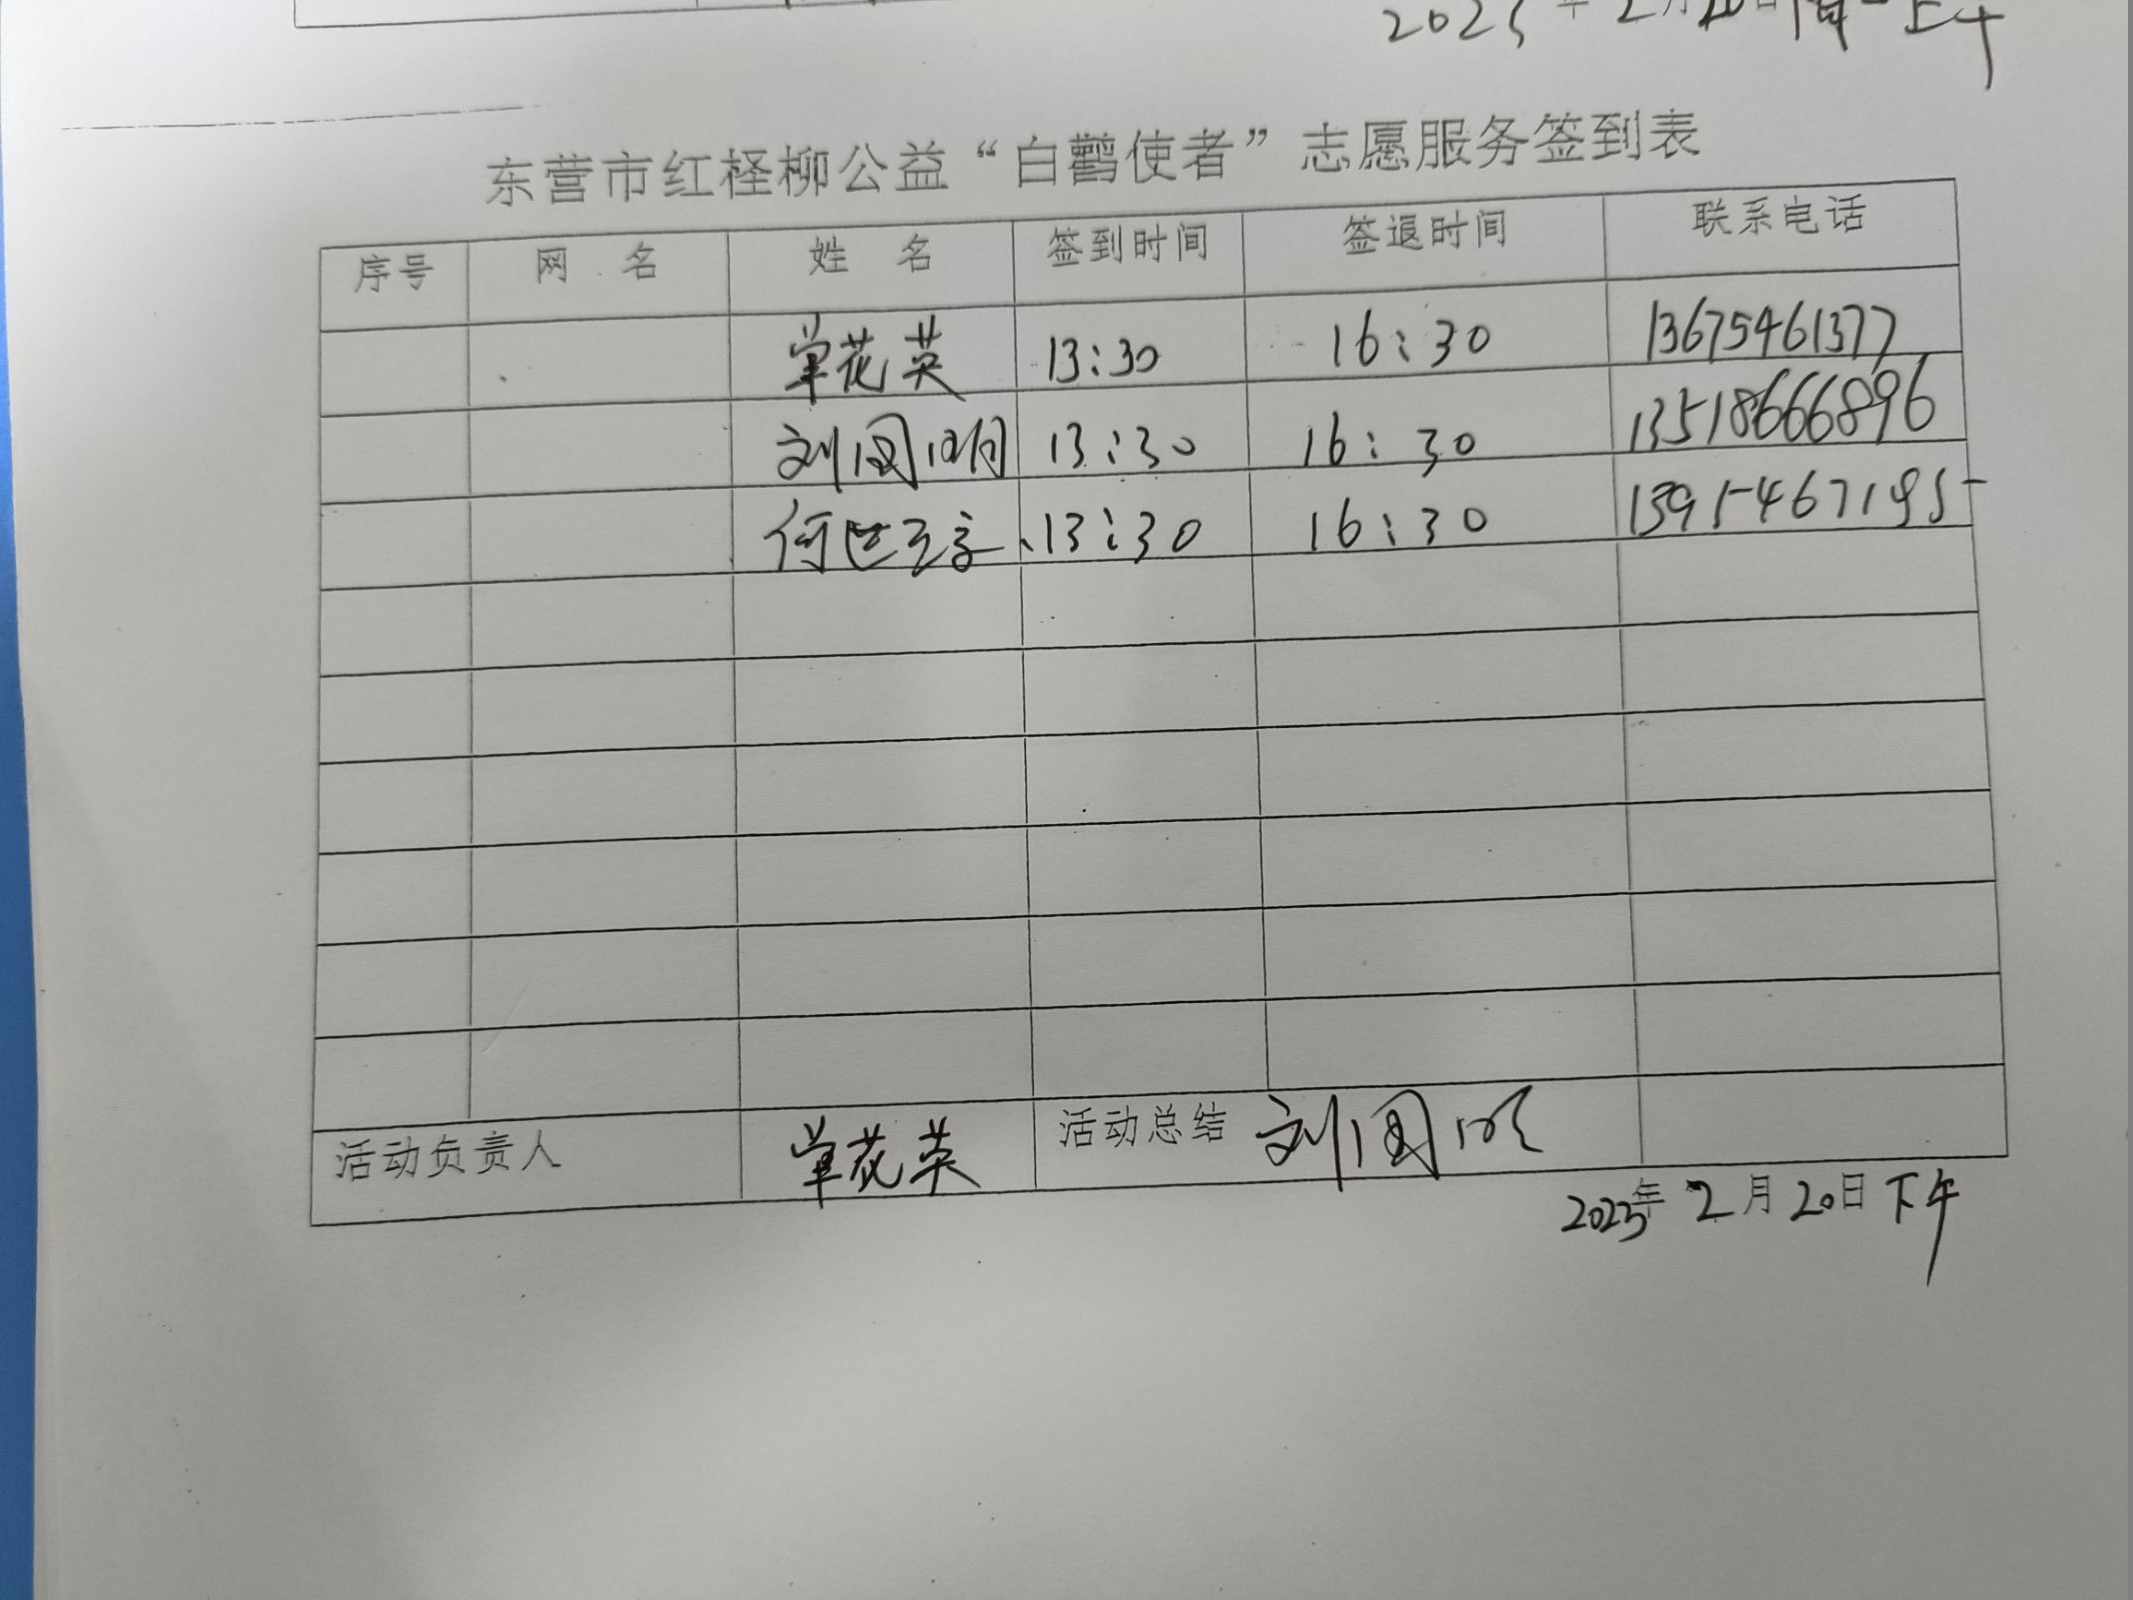 2023年2月20日周一上午
东营市红柽柳公益“白鹳使者”志愿服务签到表
序号 网 名 姓 名 签到时间 签退时间 联系电话
单花英 13:30 16:30 13675461377
刘国明 13:30 16:30 13518666896
何 13:30 16:30 1395467195
活动负责人 单花英 活动总结 刘国明
2023年2月20日下午